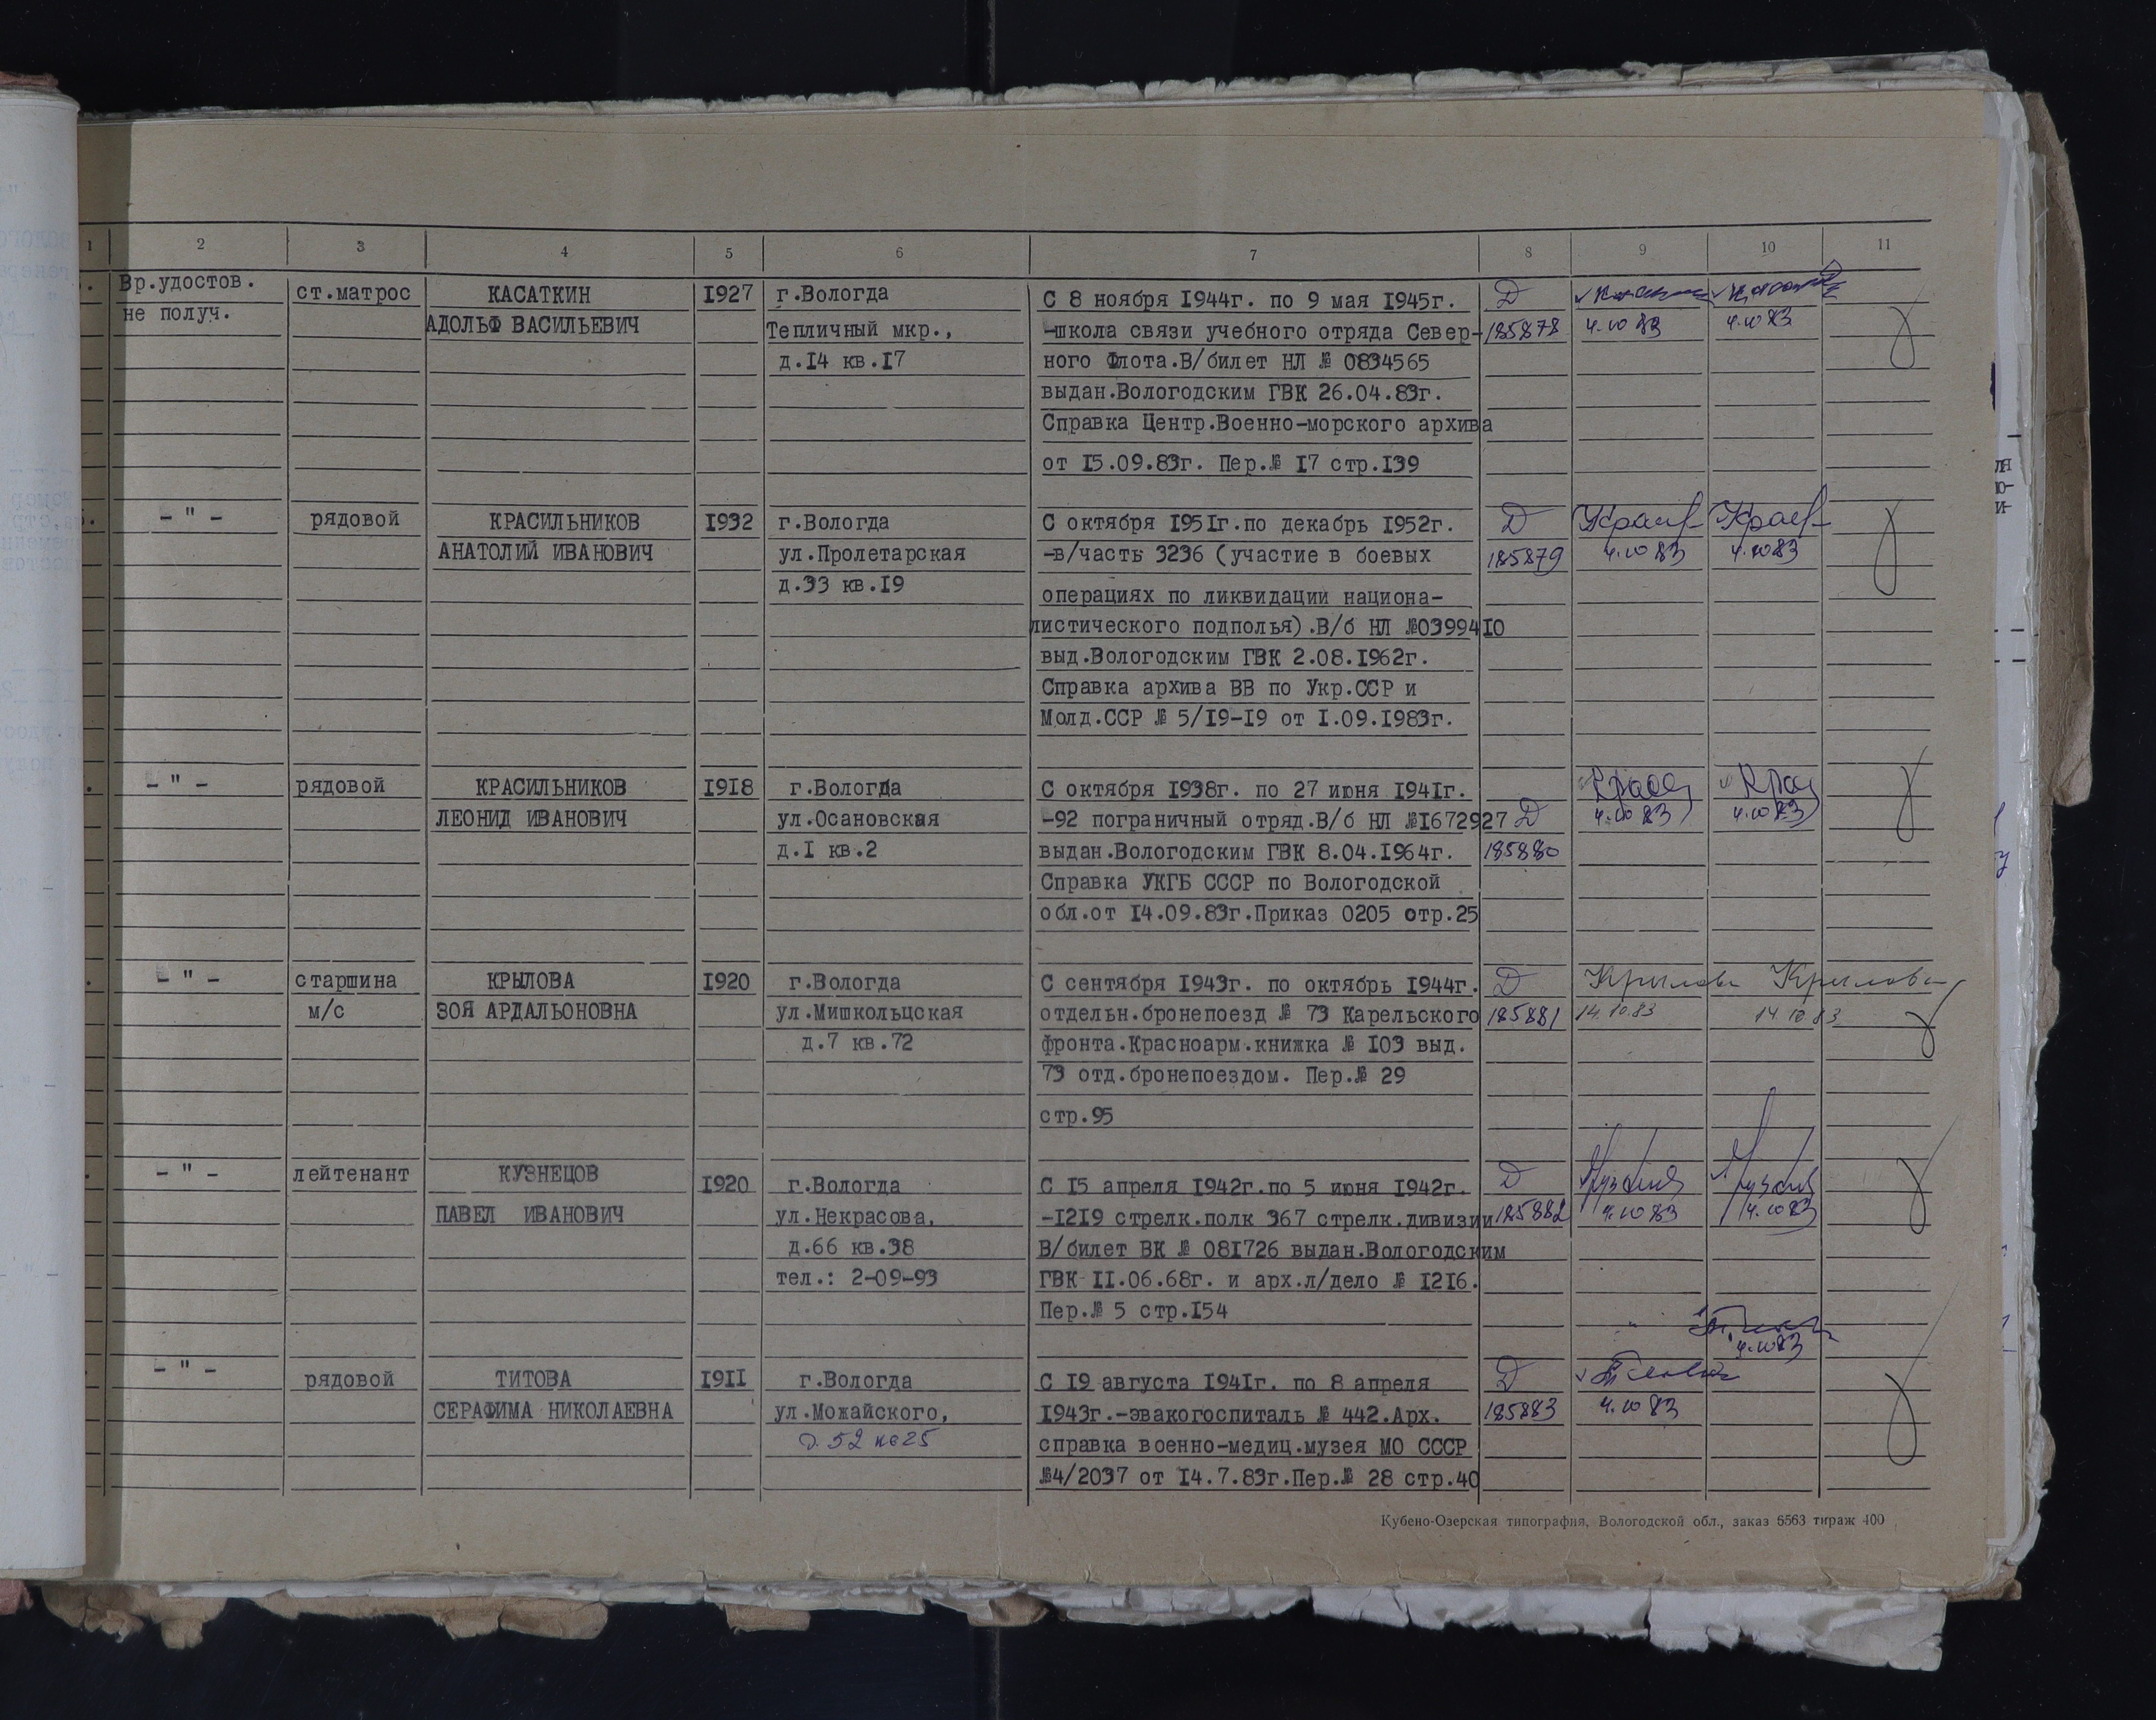 1 2 3 4 5 6 7 8 9 10 11
Вр.удостов.
не получ.
ст.матрос
КАСАТКИН
АДОЛЬФ ВАСИЛЬЕВИЧ
1927
г.Вологда
Тепличный мкр.,
д.14 кв.17
С 8 ноября 1944г. по 9 мая 1945г.
-школа связи учебного отряда Север-
ного Флота.В/билет НЛ № 0834565
выдан.Вологодским ГВК 26.04.83г.
Справка Центр.Военно-морского архива
от 15.09.83г. Пер.№ 17 стр.139
Д
185878
4.10 83
4.10 83
- " -
рядовой
КРАСИЛЬНИКОВ
АНАТОЛИЙ ИВАНОВИЧ
1932
г.Вологда
ул.Пролетарская
д.33 кв.19
С октября 1951г.по декабрь 1952г.
-в/часть 3236 (участие в боевых
операциях по ликвидации национа-
листического подполья).В/б НЛ №0399410
выд.Вологодским ГВК 2.08.1962г.
Справка архива ВВ по Укр.ССР и
Молд.ССР № 5/19-19 от 1.09.1983г.
Д
185879
4.10 83
4.10 83
- " -
рядовой
КРАСИЛЬНИКОВ
ЛЕОНИД ИВАНОВИЧ
1918
г.Вологда
ул.Осановская
д.1 кв.2
С октября 1938г. по 27 июня 1941г.
-92 пограничный отряд.В/б НЛ №1672927
выдан.Вологодским ГВК 8.04.1964г.
Справка УКГБ СССР по Вологодской
обл.от 14.09.83г.Приказ 0205 стр.25
Д
185880
4.10 83
4.10 83
- " -
старшина
м/с
КРЫЛОВА
ЗОЯ АРДАЛЬОНОВНА
1920
г.Вологда
ул.Мишкольцская
д.7 кв.72
С сентября 1943г. по октябрь 1944г.
отдельн.бронепоезд № 73 Карельского
фронта.Красноарм.книжка № 103 выд.
73 отд.бронепоездом. Пер.№ 29
стр.95
Д
185881
Крылова
14.10.83
Крылова
14 10.83
- " -
лейтенант
КУЗНЕЦОВ
ПАВЕЛ ИВАНОВИЧ
1920
г.Вологда
ул.Некрасова,
д.66 кв.38
тел.: 2-09-93
С 15 апреля 1942г.по 5 июня 1942г.
-1219 стрелк.полк 367 стрелк.дивизии
В/билет ВК № 081726 выдан.Вологодским
ГВК 11.06.68г. и арх.л/дело № 1216.
Пер.№ 5 стр.154
Д
185882
4.10 83
4.10 83
- " -
рядовой
ТИТОВА
СЕРАФИМА НИКОЛАЕВНА
1911
г.Вологда
ул.Можайского,
д. 52 кв 25
С 19 августа 1941г. по 8 апреля
1943г.-эвакогоспиталь № 442.Арх.
справка военно-медиц.музея МО СССР
№4/2037 от 14.7.83г.Пер.№ 28 стр.40
Д
185883
4.10 83
4.10 83
Кубено-Озерская типография, Вологодской обл., заказ 6563 тираж 400